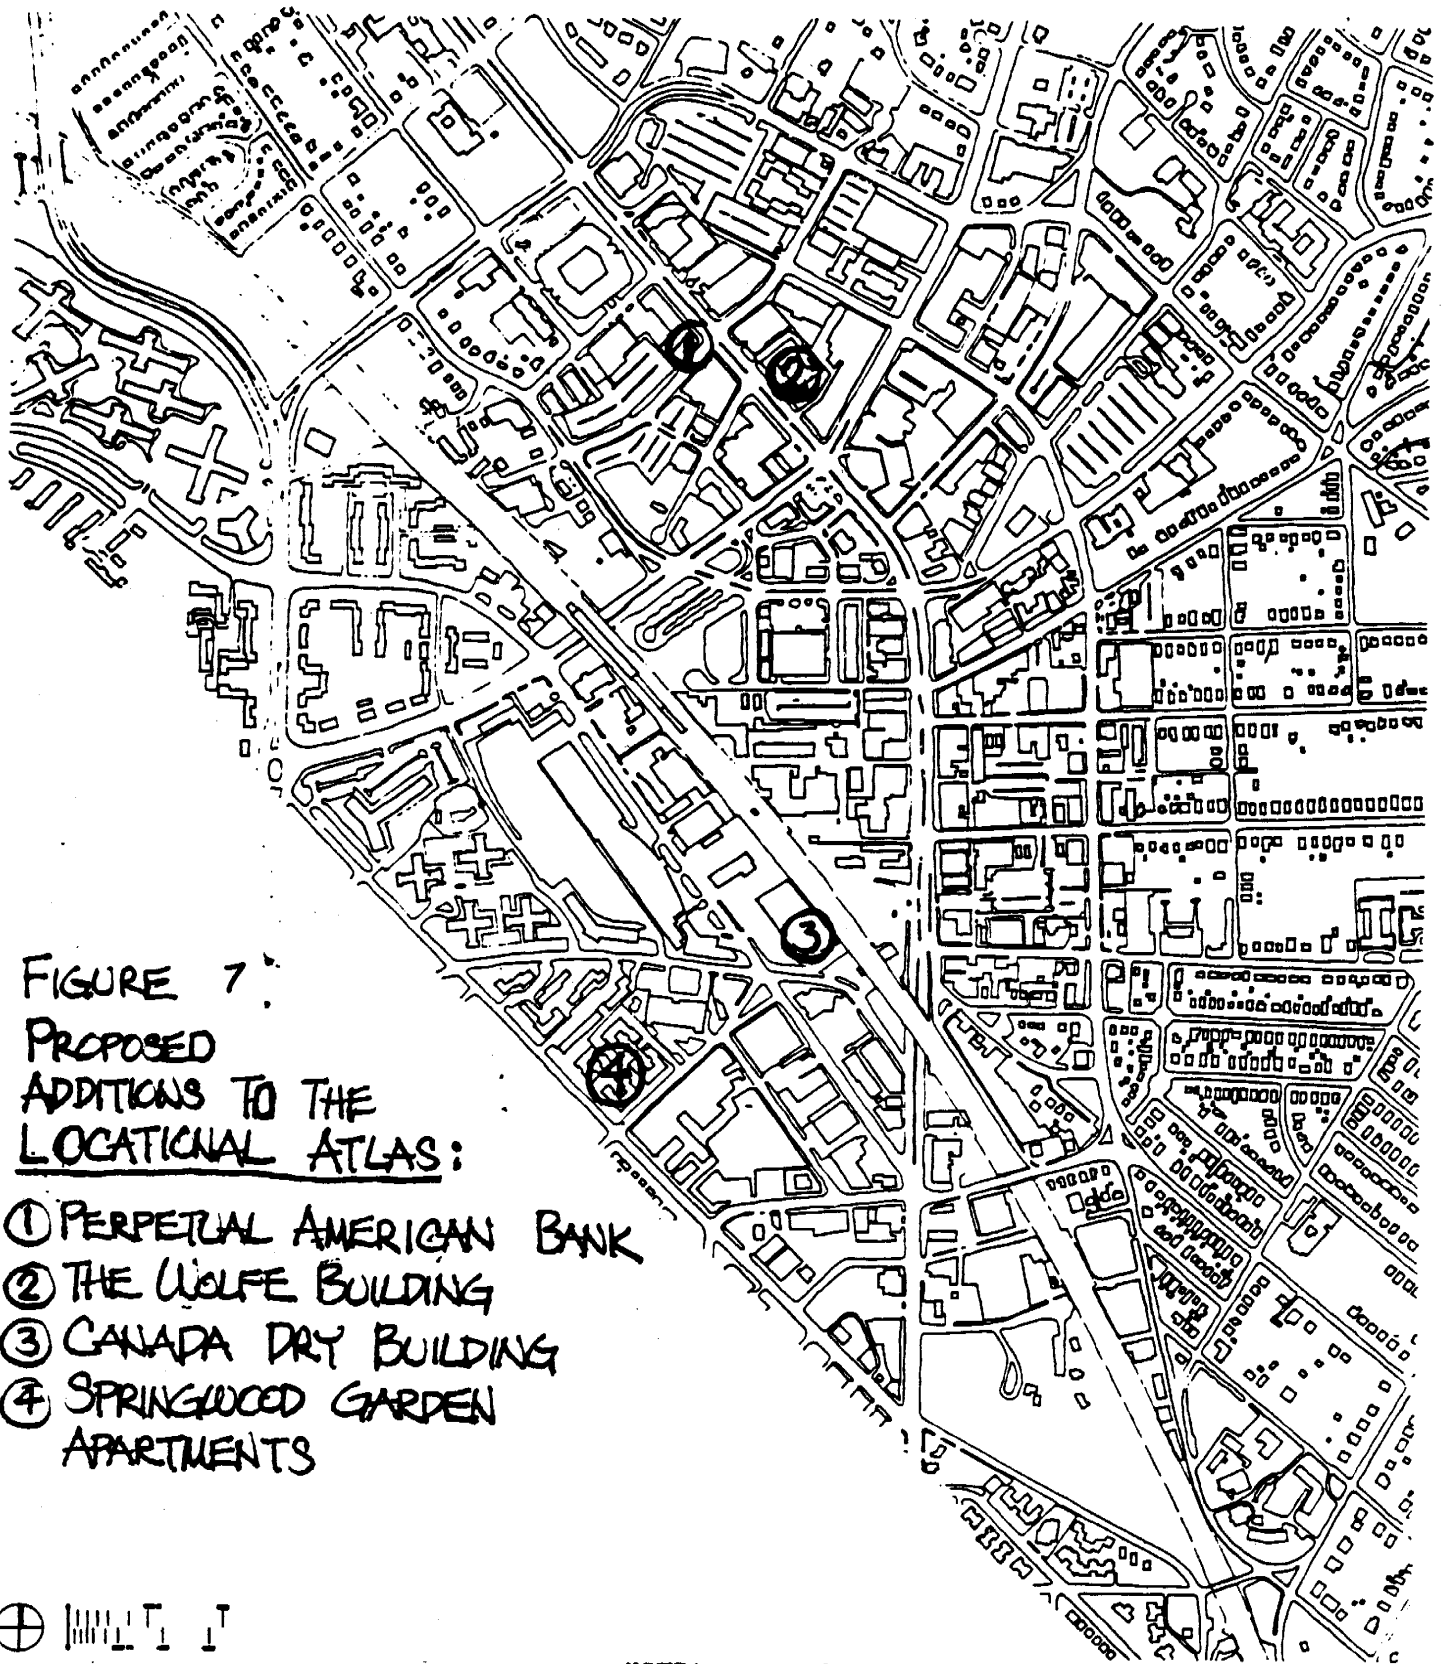 FIGURE 7:
PROPOSED
ADDITIONS TO THE
LOCATIONAL ATLAS:
① PERPETUAL AMERICAN BANK
② THE WOLFE BUILDING
③ CANADA DRY BUILDING
④ SPRINGWOOD GARDEN
APARTMENTS
3
4